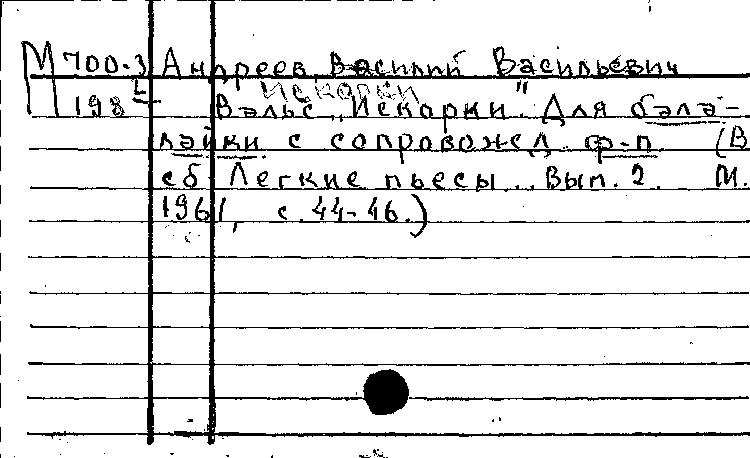 М 700-3 Андреев, Василий Васильевич
искорки
198 Вальс „Искорки". Для бала-
лайки с сопровожд. ф-п. (В
сб. Легкие пьесы... Вып. 2. М.
1961, с. 44-46.)